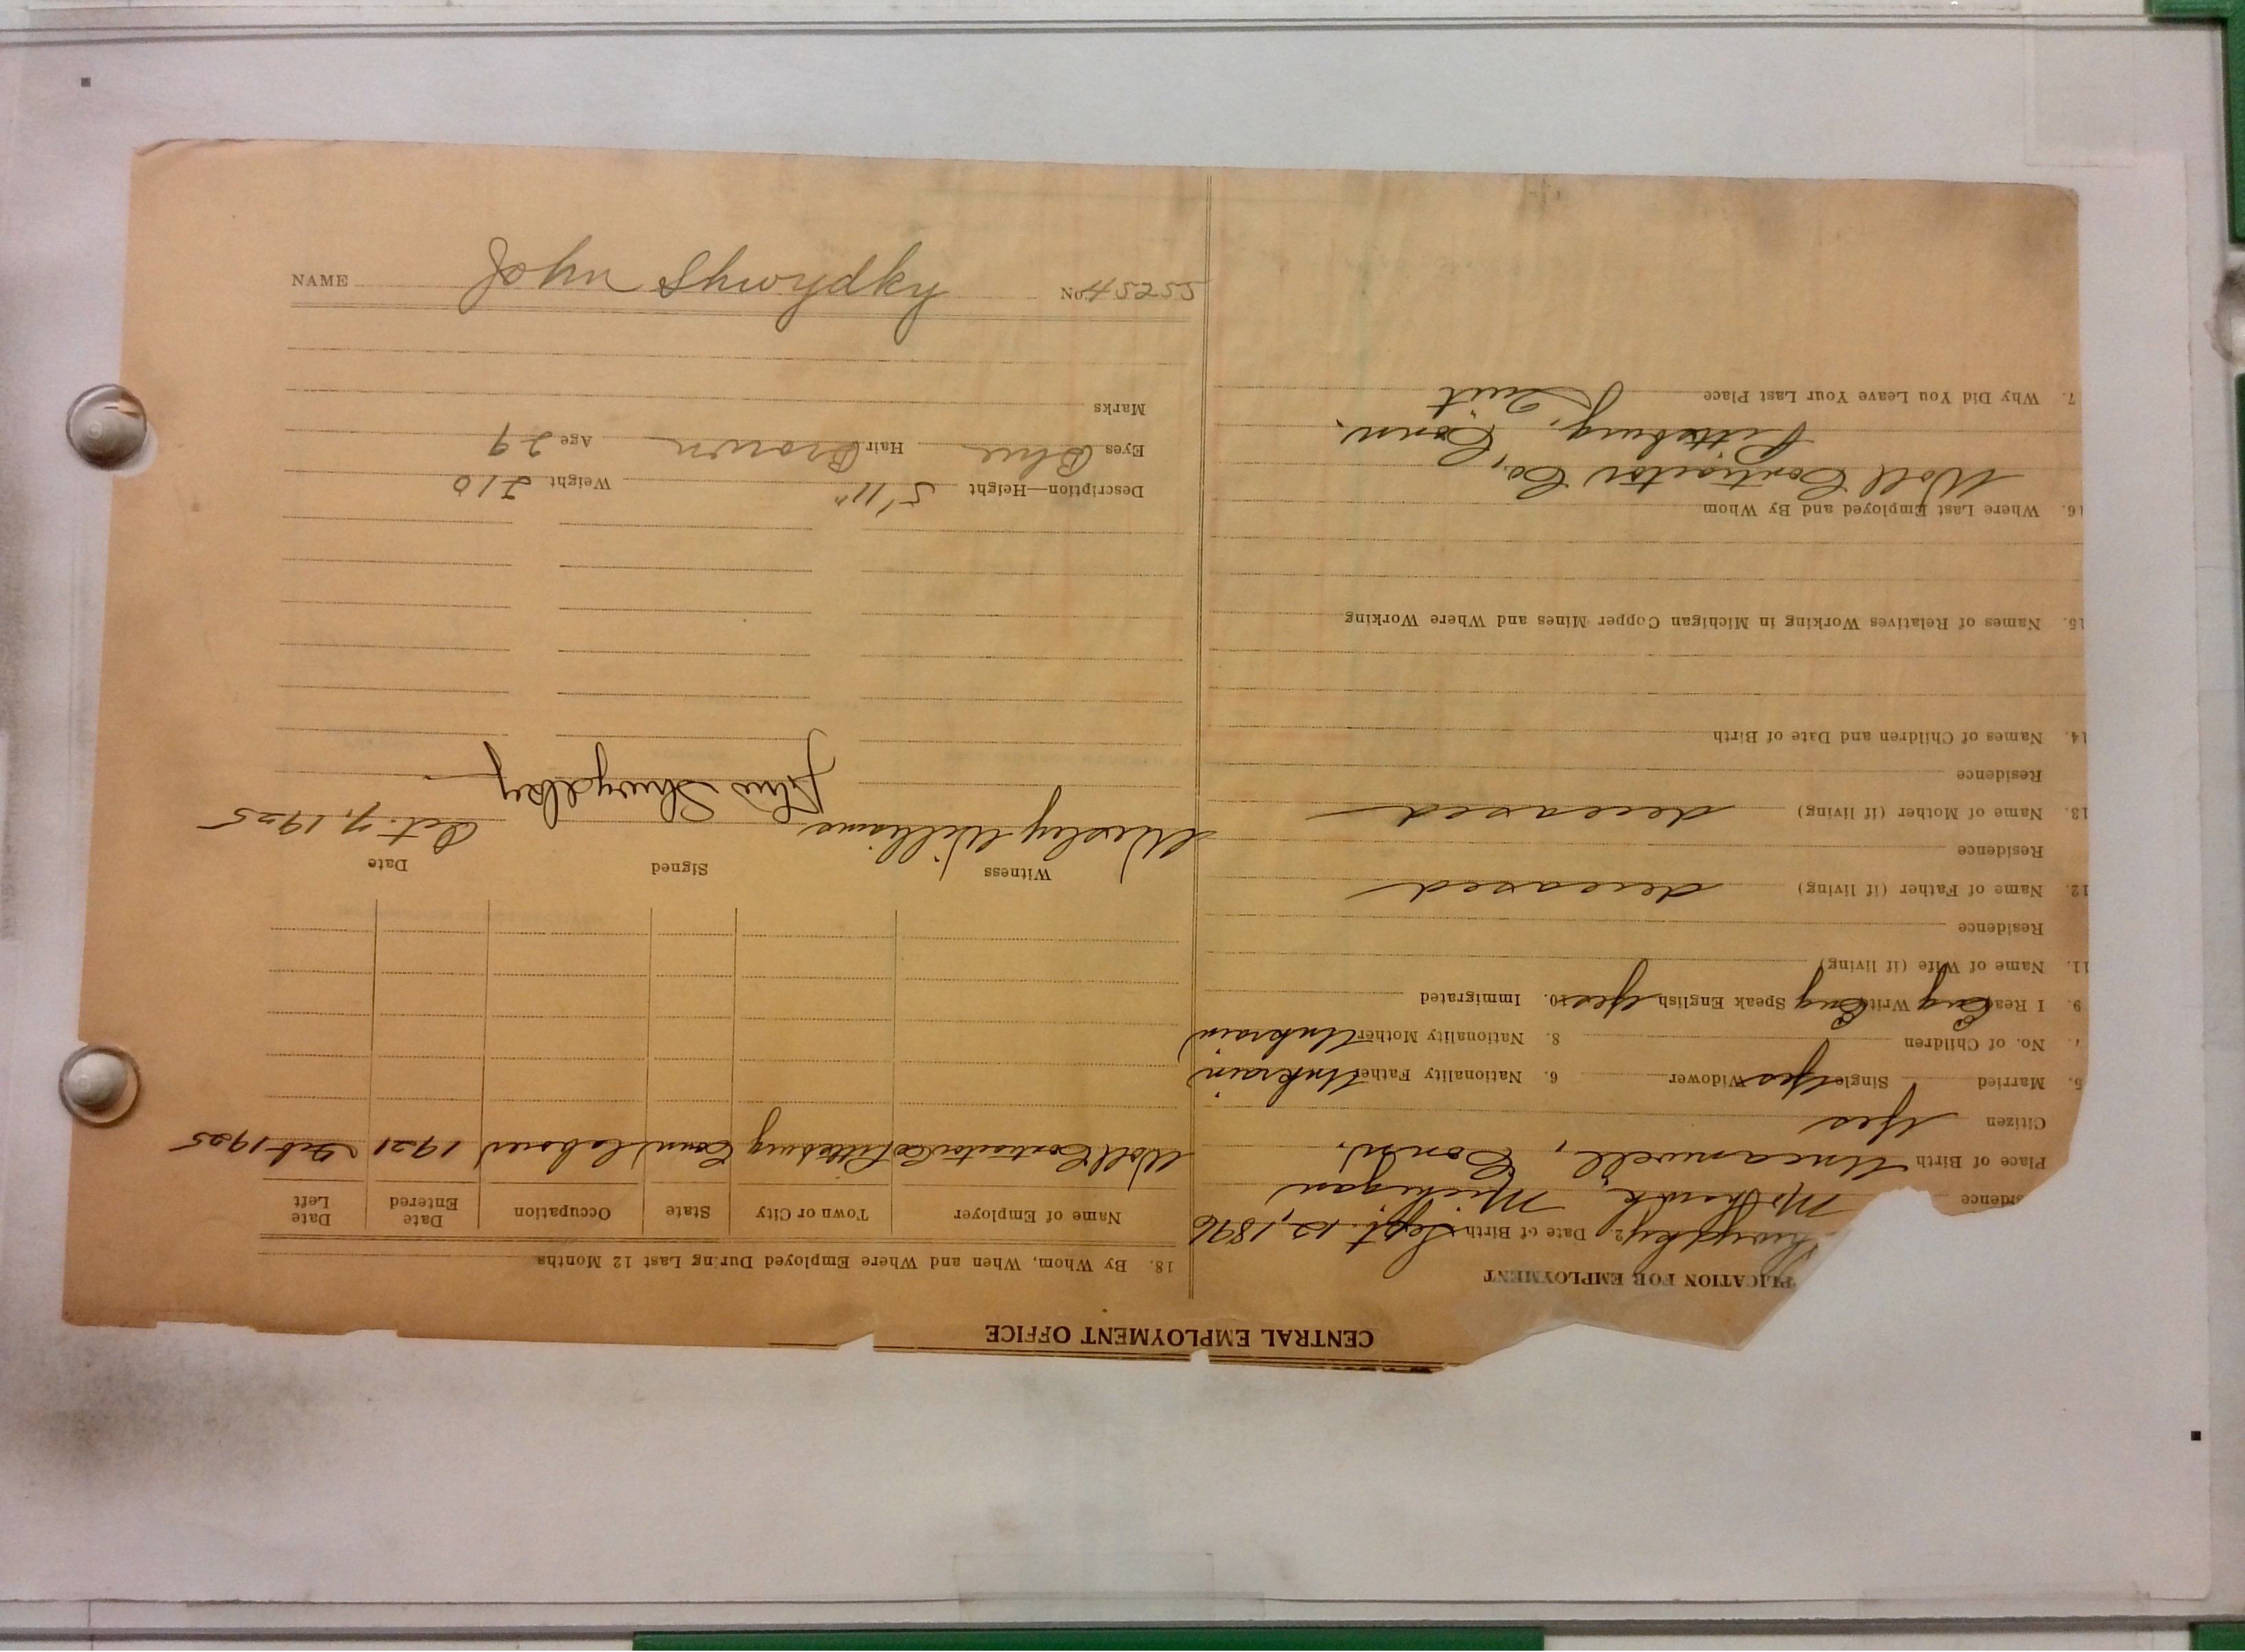 NAME John Shwydky No. 45255
CENTRAL EMPLOYMENT OFFICE
PLICATION FOR EMPLOYMENT
Shwydky 2. Date of Birth Sept. 12, 1896
sidence Mohawk, Michigan
Place of Birth Uncanville, Conn.
Citizen Yes
5. Married Single Yes Widower 6. Nationality Father Unkrain
7. No. of Children 8. Nationality Mother Unkrain
9. I Read Eng Write Eng Speak English Yes 10. Immigrated
11. Name of Wife (if living)
Residence
12. Name of Father (if living) deceased
Residence
13. Name of Mother (if living) deceased
Residence
14. Names of Children and Date of Birth
15. Names of Relatives Working in Michigan Copper Mines and Where Working
16. Where Last Employed and By Whom
Woll Contractor Co,
Pittsburg, Conn.
7. Why Did You Leave Your Last Place Quit
18. By Whom, When and Where Employed During Last 12 Months
Name of Employer Town or City State Occupation Date Entered Date Left
Woll Contractor Co Pittsburg Conn laborer 1921 Feb 1925
Witness Signed Date
Wesley Williams John Shwydky Oct. 7, 1925
Description—Height 5' 11" Weight 210
Eyes Blue Hair Brown Age 29
Marks